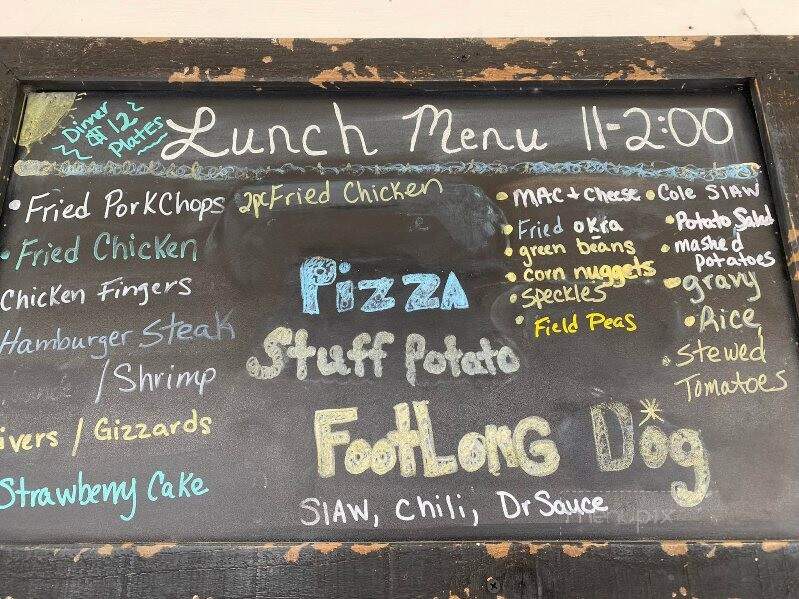 Dinner
$12
Plates
Lunch Menu 11-2:00
• Fried PorkChops
• Fried Chicken
Chicken Fingers
Hamburger Steak
/Shrimp
ivers / Gizzards
Strawberry Cake
2pc Fried Chicken
Pizza
Stuff Potato
FootLong Dog
SLAW, Chili, Dr Sauce
• MAC + Cheese
• Fried okra
• green beans
• corn nuggets
• Speckles
• Field Peas
• Cole SLAW
• Potato Salad
• mashed
potatoes
• gravy
• Rice
• Stewed
Tomatoes